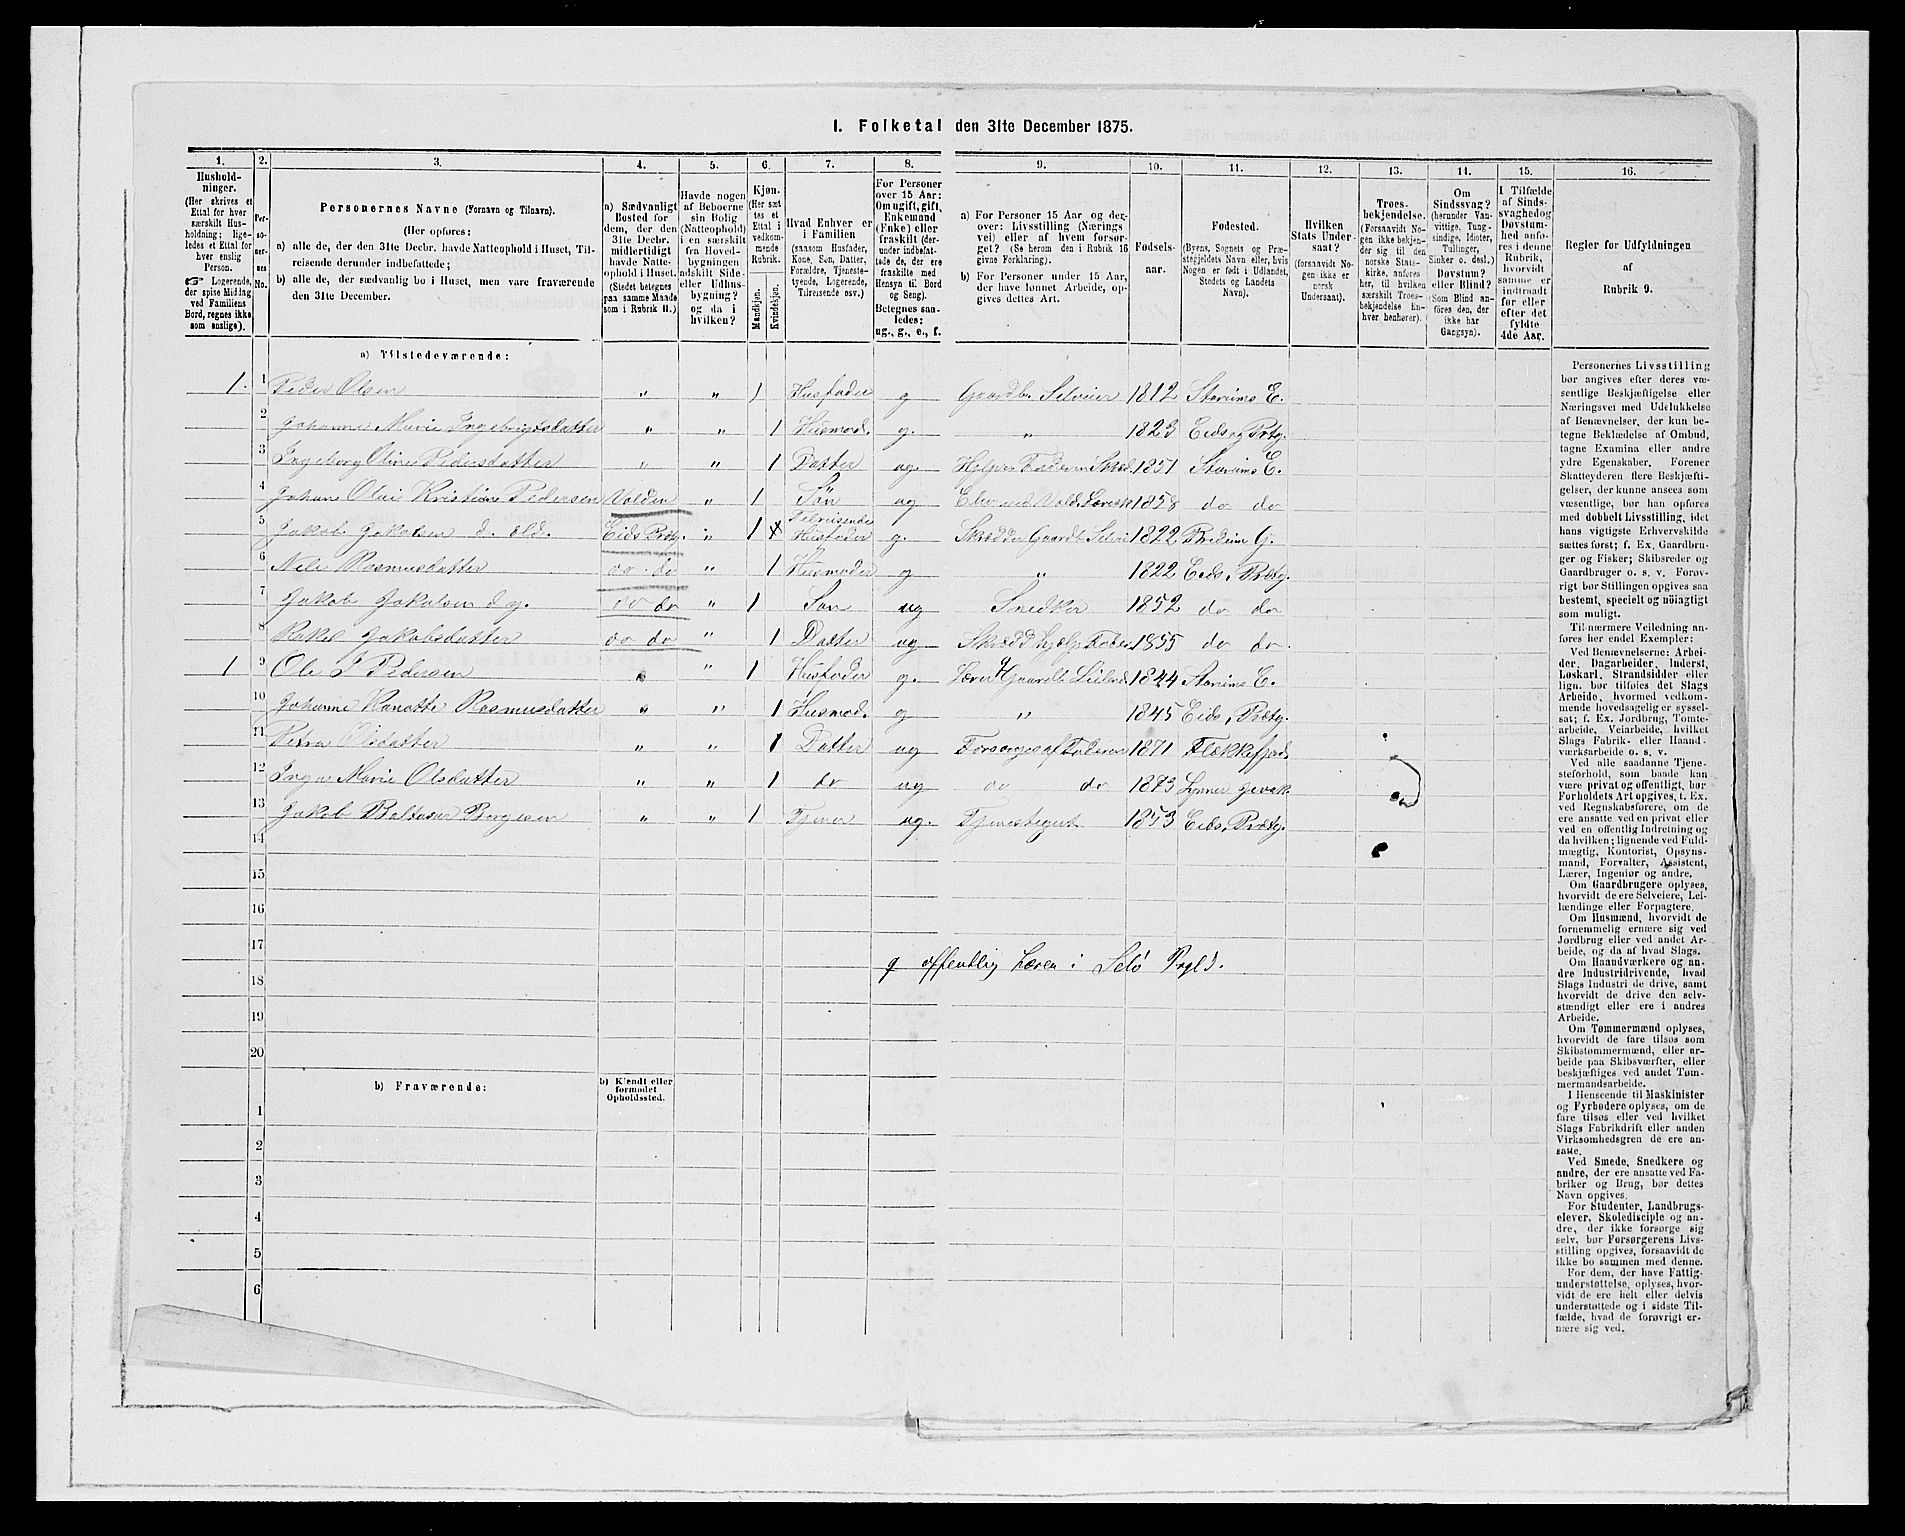 I. Folketal den 31te December 1875.
1. 2. 3. 4. 5. 6. 7. 8. 9. 10. 11. 12. 13. 14. 15. 16.
Hushold-
ninger.
(Her skrives et
Ettal for hver
særskilt Hus-
holdning; lige-
ledes et Ettal for
hver enslig
Person.
☞ Logerende,
der spise Middag
ved Familiens
Bord, regnes ikke
som enslige).
Per-
so-
ner-
nes
No.
Personernes Navne (Fornavn og Tilnavn).
(Her opføres:
a) alle de, der den 31te Decbr. havde Natteophold i Huset, Til-
reisende derunder indbefattede;
b) alle de, der sædvanlig bo i Huset, men vare fraværende
den 31te December.
a) Sædvanligt
Bosted for
dem, der den
31te Decbr.
midlertidigt
havde Natte-
ophold i Huset.
(Stedet betegnes
paa samme Maade
som i Rubrik 11.)
Havde nogen
af Beboerne
sin Bolig
(Natteophold)
i en særskilt
fra Hoved-
bygningen
adskilt Side-
eller Udhus-
bygning?
og da i
hvilken?
Kjøn.
(Her sæt-
tes et
Ettal i
vedkom-
mende
Rubrik.
Mandkjøn.
Kvindekjøn.
Hvad Enhver er
i Familien
(saasom Husfader,
Kone, Søn, Datter,
Forældre, Tjeneste-
tyende, Logerende,
Tilreisende osv.)
For Personer
over 15 Aar:
Om ugift, gift,
Enkemand
(Enke) eller
fraskilt (der-
under indbefat-
tede de, der ere
fraskilte med
Hensyn til Bord
og Seng).
Betegnes saa-
ledes:
ug., g., e., f.
a) For Personer 15 Aar og der-
over: Livsstilling (Nærings
vei) eller af hvem forsør-
get? (Se herom den i Rubrik 16
givne Forklaring).
b) For Personer under 15 Aar,
der have lønnet Arbeide, op-
gives dettes Art.
Fødsels-
aar.
Fødested.
(Byens, Sognets og Præ-
stegjeldets Navn eller, hvis
Nogen er født i Udlandet,
Stedets og Landets
Navn).
Hvilken
Stats Under-
saat?
(forsaavidt No-
gen ikke er
norsk
Undersaat).
Troes-
bekjendelse.
(Forsaavidt No-
gen ikke bekjen-
der sig til den
norske Stats-
kirke, anføres
her, til hvilken
særskilt Troes-
bekjendelse En-
hver henhører).
Om
Sindssvag?
(herunder Van-
vittige, Tung-
sindige, Idioter,
Tullinger,
Sinker o. desl.)
Døvstum?
eller Blind?
(Som Blind an-
føres den, der
ikke har
Gangsyn).
I Tilfælde
af Sinds-
svaghed og
Døvstum-
hed anfø-
res i denne
Rubrik,
hvorvidt
samme er
indtraadt
før eller
efter det
fyldte
4de Aar.
Regler for Udfyldningen
af
Rubrik 9.
a) Tilstedeværende:
1. 1 Peder Olsen " " 1 Husfader g Gaardbr Selveier 1812 Starims E.
2 Johanne Marie Ingebrigtsdatter " " 1 Husmod. g. " 1823 Eids Prtg.
3 Ingeborg Oline Pedersdatter " " 1 Datter ug. 1851 Starims E.
4 Johan Olai Kristian Pedersen Volden " 1 Søn ug 1858 do do
5 Jakob Jakobsen d. æld. Eids Prtg. " 1 x Tilreisende Husfader g. Skrædder Gaardb Selvei 1822 Bredem G.
6 Nele Rasmusdatter do do " 1 Husmoder g " 1822 Eids Prætg.
7 Jakob Jakobsen d y. do do " 1 Søn ug Snedker 1852 do do
8 Rakel Jakobsdatter do do " 1 Datter ug 1855 do do.
1 9 Ole J Pedersen " " 1 Husfader g. Lærer Gaardb Leilend 1844 Starims E.
10 Johanne Hanatte Rasmusdatter " " 1 Husmod. g " 1845 Eids Prætg.
11 Petra Olsdatter " " 1 Datter ug Forsørges af Faderen 1871 Flekkefjord
12 Inga Marie Olsdatter " " 1 do ug do do 1873
13 Jakob Baltasar Børgesen " " 1 Tjener ug. Tjenestegut 1853 Eids, Prætg.
14
15
16
17
g offentlig Lærer i Selø Prgld.
18
19
20
b) Fraværende:
b) Kjendt eller
formodet
Opholdssted.
1
2
3
4
5
6
Personernes Livsstilling
bør angives efter deres væ-
sentlige Beskjæftigelse eller
Næringsvei med Udelukkelse
af Benævnelser, der kun be-
tegne Beklædelse af Ombud,
tagne Examina eller andre
ydre Egenskaber. Forener
Skatteyderen flere Beskjæfti-
gelser, der kunne ansees som
væsentlige, bør han opføres
med dobbelt Livsstilling, idet
hans vigtigste Erhvervskilde
sættes først; f. Ex. Gaardbru-
ger og Fisker; Skibsreder og
Gaardbruger o. s. v. Forøv-
rigt bør Stillingen opgives saa
bestemt, specielt og nöiagtigt
som muligt.
Til nærmere Veiledning an-
føres her endel Exempler:
Ved Benævnelserne: Arbei-
der, Dagarbeider, Inderst,
Løskarl, Strandsidder eller
lign. bør tilføies det Slags
Arbeide, hvormed vedkom-
mende hovedsagelig er syssel-
sat; f. Ex. Jordbrug, Tomte-
arbeide, Veiarbeide, hvilket
Slags Fabrik- eller Haand-
værksarbeide o. s. v.
Ved alle saadanne Tjene-
steforhold, som baade kan
være privat og offentligt, bør
Forholdets Art opgives, t. Ex.
ved Regnskabsførere, om de
ere ansatte ved en privat eller
ved en offentlig Indretning og
da hvilken; lignende ved Fuld-
mægtig, Kontorist, Opsyns-
mand, Forvalter, Assistent,
Lærer, Ingeniør og andre.
Om Gaardbrugere oplyses,
hvorvidt de ere Selveiere, Lei-
lændinge eller Forpagtere.
Om Husmænd, hvorvidt de
fornemmelig ernære sig ved
Jordbrug eller ved andet Ar-
beide, og da af hvad Slags.
Om Haandværkere og an-
dre Industridrivende, hvad
Slags Industri de drive, samt
hvorvidt de drive den selv-
stændigt eller ere i andres
Arbeide.
Om Tømmermænd oplyses,
hvorvidt de fare tilsøs som
Skibstømmermænd, eller ar-
beide paa Skibsværfter, eller
beskjæftiges ved andet Tøm-
mermandsarbeide.
I Henseende til Maskinister
og Fyrbødere oplyses, om de
fare tilsøs eller ved hvilket
Slags Fabrikdrift eller anden
Virksomhedsgren de ere an-
satte.
Ved Smede, Snedkere og
andre, der ere ansatte ved Fa-
briker og Brug, bør dettes
Navn opgives.
For Studenter, Landbrugs-
elever, Skoledisciple og an-
dre, der ikke forsørge sig
selv, bør Forsørgerens Livs-
stilling opgives, forsaavidt de
ikke bo sammen med denne.
For dem, der have Fattig-
understøttelse, oplyses, hvor-
vidt de ere helt eller delvis
understøttede og i sidste Til-
fælde, hvad de forøvrigt er-
nære sig ved.